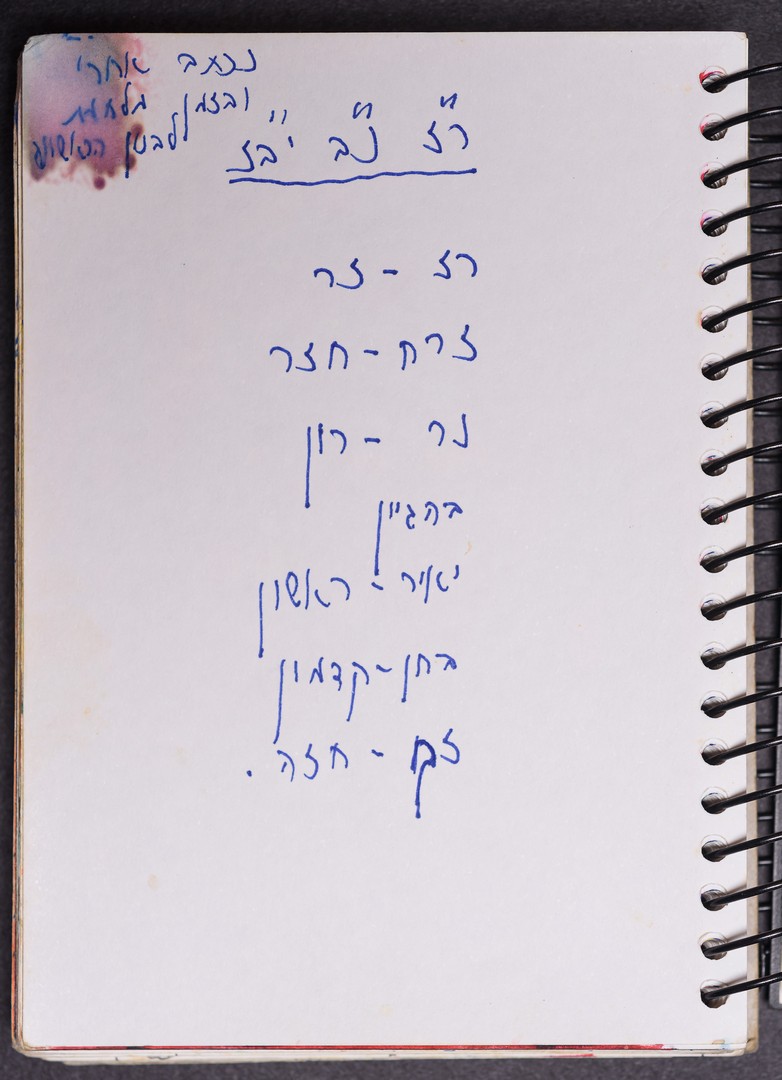 נכתב אחרי
ובזמן מלחמת
לבנון הראשונה
ר״ז נ״ב י״בז
רז - זר
זרח - חזר
נר - רון
בהגיון
יאיר - ראשון
בחן - קדמון
זקן - חזה .